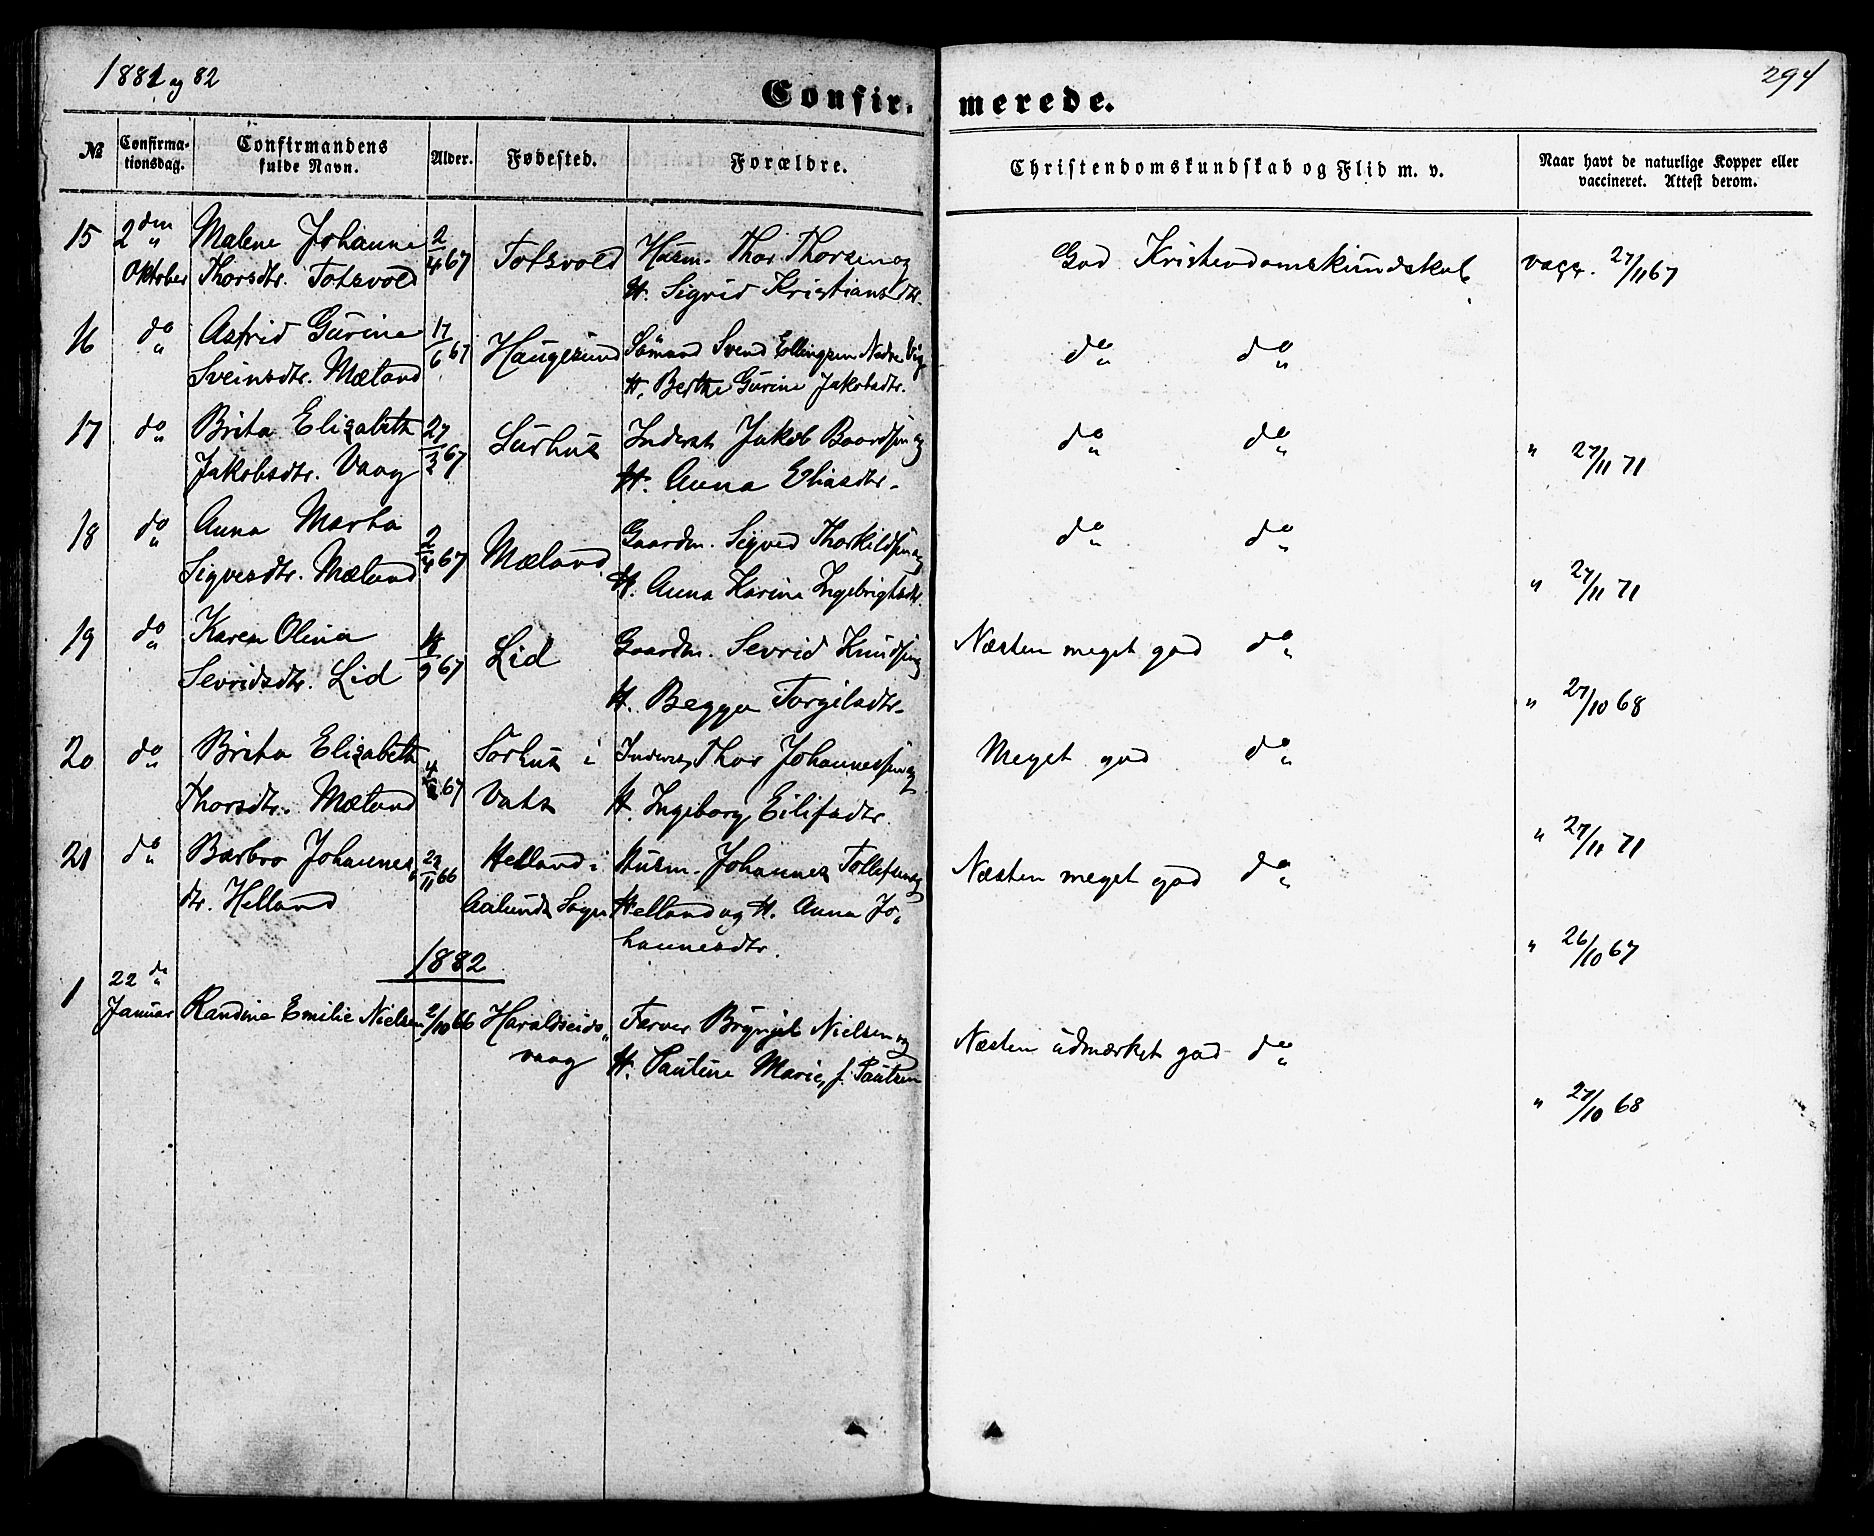 1881 og 82
294
Confir- merede.
№ Confirma-tionsdag. Confirmandens fulde Navn. Alder. Fødested. Forældre. Christendomskundskab og Flid m. v. Naar havt de naturlige Kopper eller vaccineret. Attest derom.
15 2den Malene Johanne 2/4 67 Totsvold Husm. Thor Thorsen og God Kristendomskundskab vacc. 27/11 67
Oktober Thorsdtr. Totsvold H. Sigrid Kristiansdtr.
16 do Astrid Gurine 17/6 67 Haugesund Sömand Svend Ellingsen Nedre og do do
Sveinsdtr. Mæland H. Berthe Gurine Jakobsdtr.
17 do Brita Elizabeth 27/2 67 Surhus Inderst Jakob Baardsen og do do " 27/11 71
Jakobsdtr. Vaag H. Anna Eliasdtr.
18 do Anna Marta 2/4 67 Mæland Gaardm. Sigved Thorkildsen og do do " 27/11 71
Sigvesdtr. Mæland H. Anna Karine Ingebrigtsdtr.
19 do Karen Olina 9 67 Lid Gaardm. Sevrid Knudsen og Næsten meget god do " 27/10 68
Sevridsdtr. Lid H. Begga Torgilsdtr.
20 do Brita Elizabeth 67 Sørhus i Inderst Thor Johannessen og Meget god do " 27/11 71
Thorsdtr. Mæland Vats H. Ingeborg Eilifsdtr.
21 do Barbro Johannes- 22/11 66 Helland i Husm. Johannes Tollefsen Næsten meget god do " 26/10 67
dtr. Helland Aalunds Sogn Helland og H. Anna Jo-
hannesdtr.
1882
1 22de Januar Randine Emilie Nielsen 2/10 66 Haraldseids- Farver Brynjel Nielsen og Næsten udmærket god do " 27/10 68
vaag H. Pauline Marie, f. Paulsen